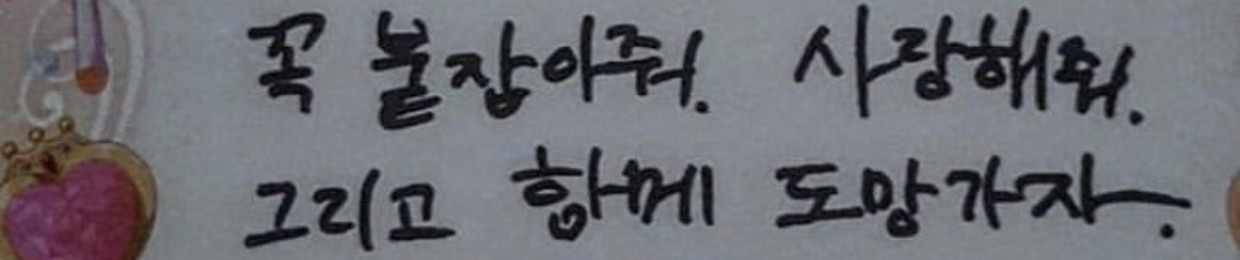 꼭 붙잡아줘. 사랑해줘.
그리고 함께 도망가자.